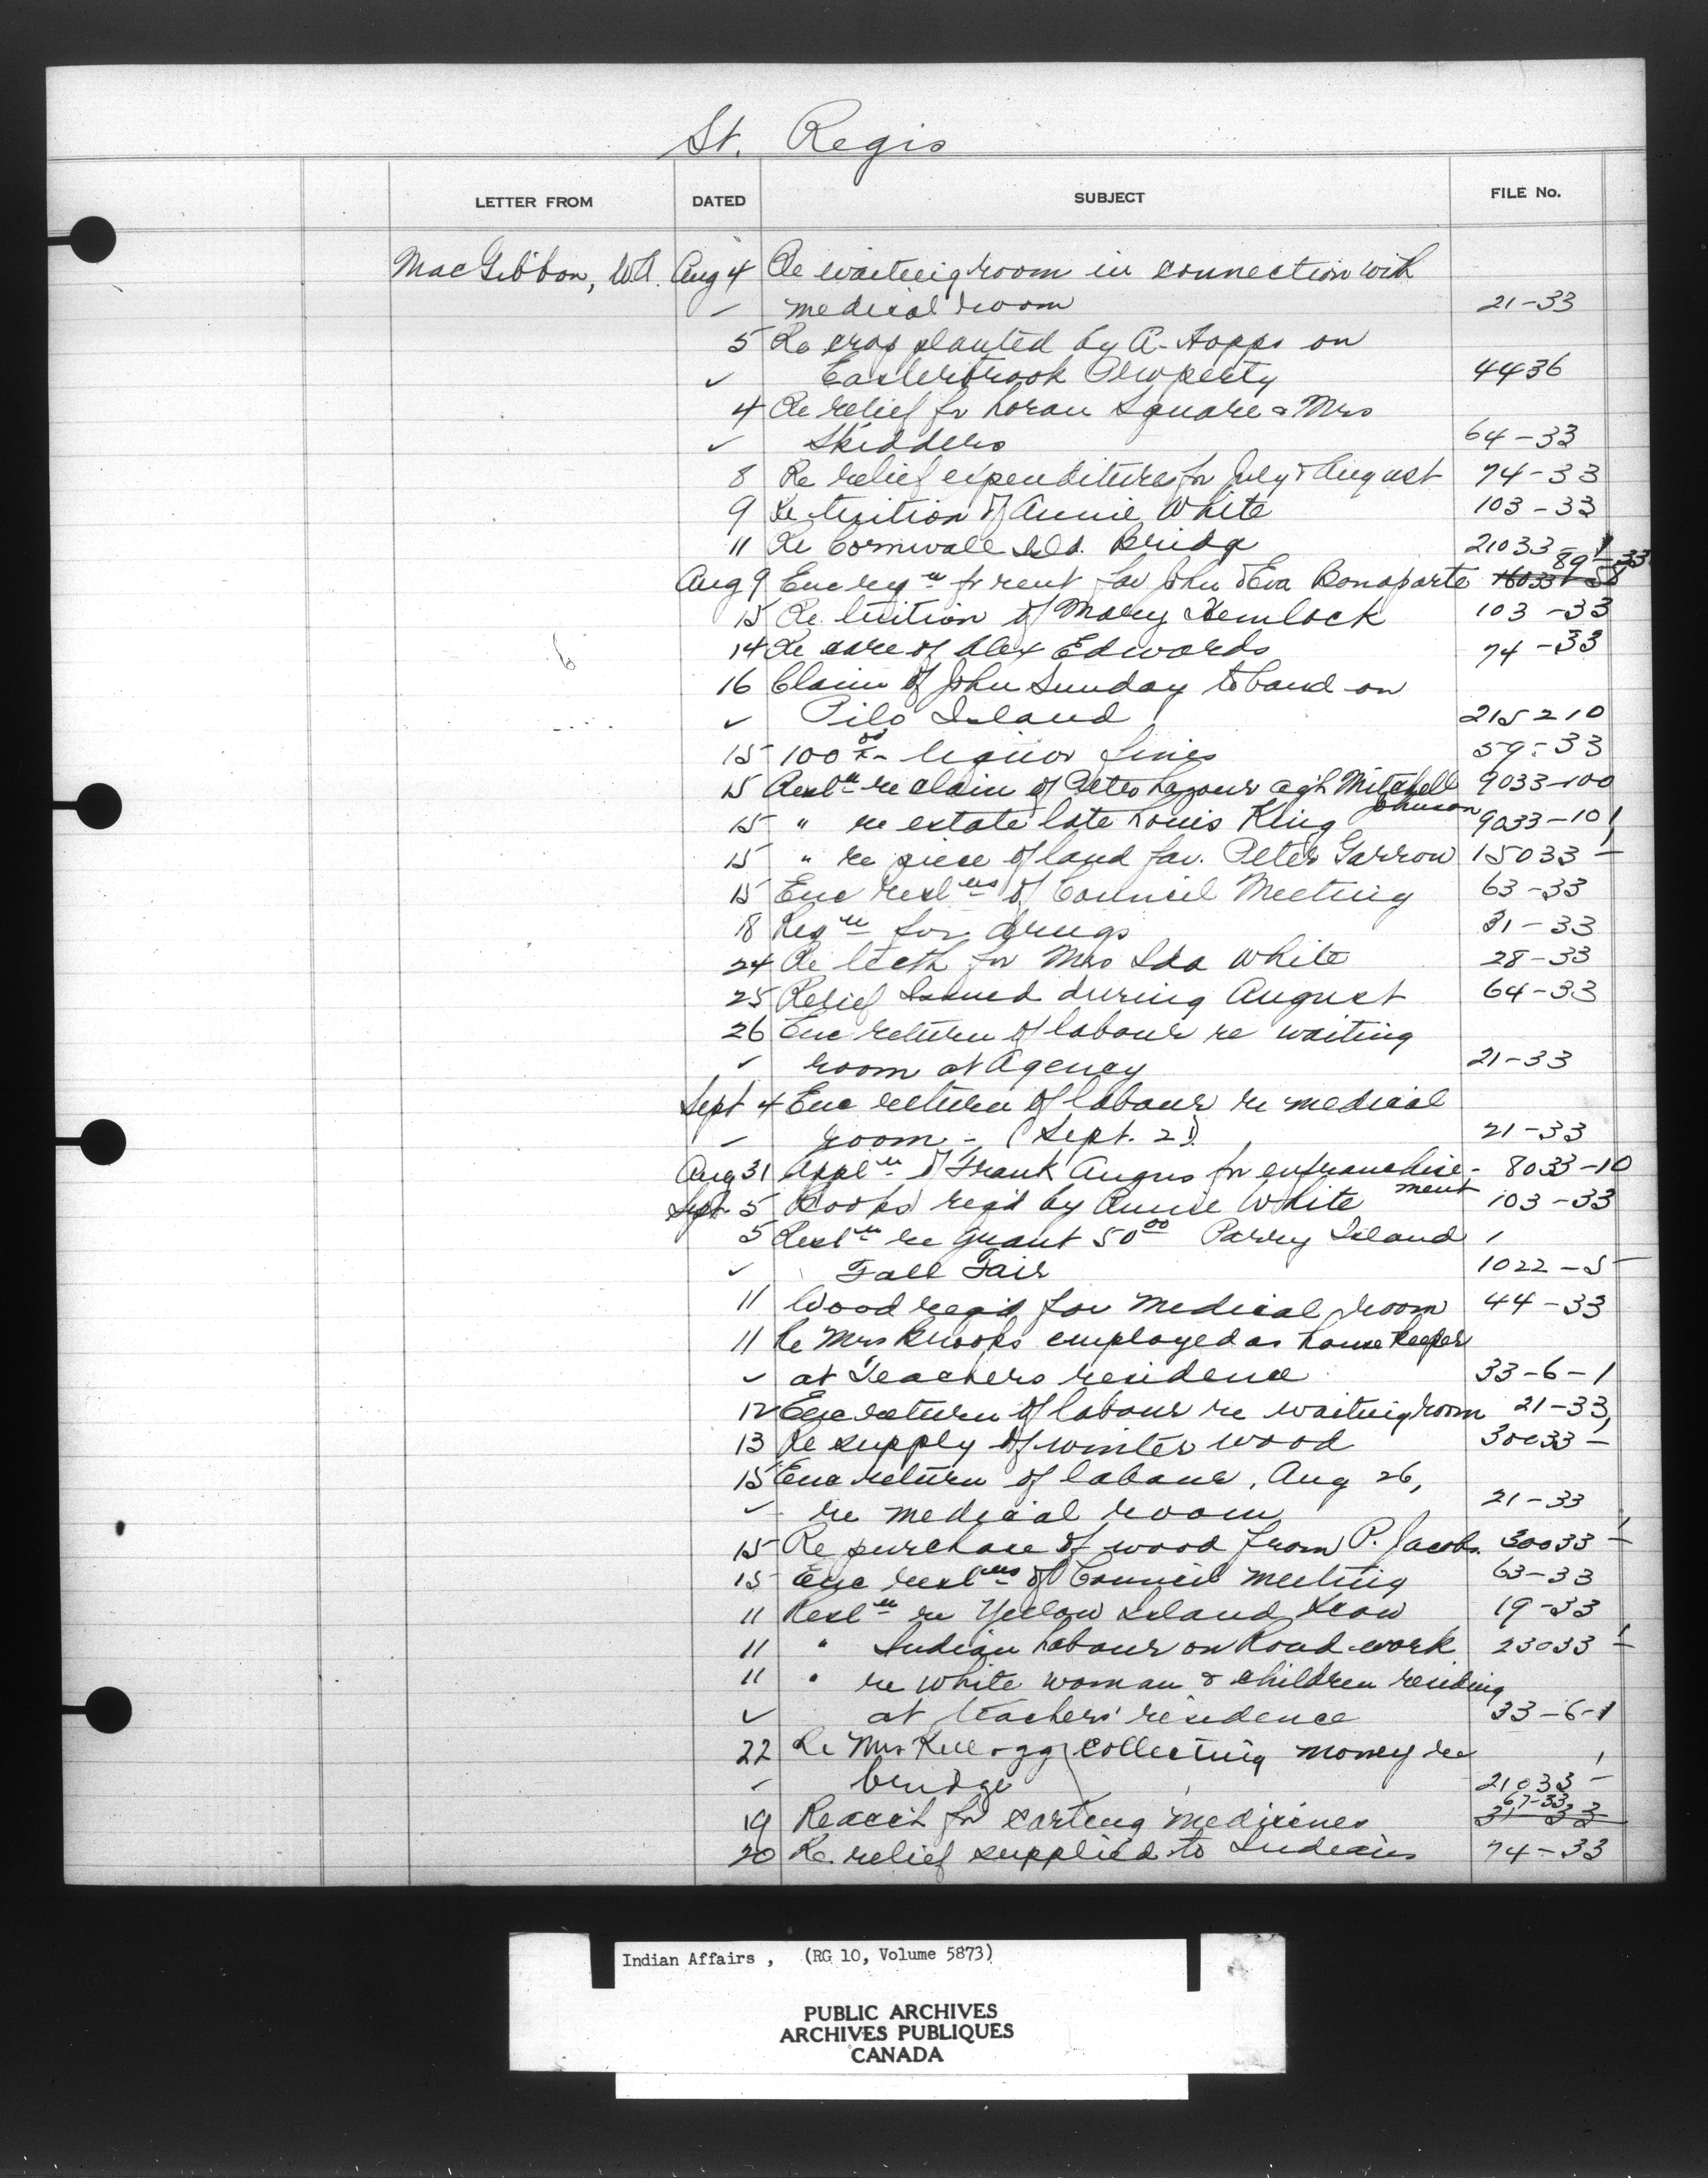 St. Regis
LETTER FROM DATED SUBJECT FILE No.
MacGibbon, W.A. Aug 4 Re waiting room in connection with
medical room 21-33
5 Re crop planted by A. Hopps on
✓ Easterbrook Property 4436
4 Re relief for Loran Square & Mrs
✓ Skidders 64-33
8 Re relief expenditures for July & August 74-33
9 Re tuition of Annie White 103-33
11 Re Cornwall Isld. Bridge 21033-1
Aug 9 Enc reqn for rent fav John & Eva Bonaparte 89-33
15 Re tuition of Mary Hemlock 103-33
14 Re care of Alex Edwards 74-33
16 Claim of John Sunday to land on
✓ Pilo Island 215210
15 100.00 liquor fines 59-33
15 Resln re claim of Peter Lazour agst Mitchell Johnson 9033-100
15 " re estate late Louis King 9033-101
15 " re piece of land fav. Peter Garrow 15033-1
15 Enc reslns of Council Meeting 63-33
18 Reqn for drugs 31-33
24 Re teeth for Mrs Ida White 28-33
25 Relief Issued during August 64-33
26 Enc return of labour re waiting
✓ room at Agency 21-33
Sept 4 Enc return of labour re medical
room - (Sept. 2) 21-33
Aug 31 Appln of Frank Angus for enfranchise-ment 8033-10
Sept. 5 Books reqd by Annie White 103-33
5 Resln re grant 50.00 Parry Island
✓ Fall Fair 1022-5
11 Wood reqd for Medical room 44-33
11 Re Mrs Brooks employed as housekeeper
✓ at Teachers residence 33-6-1
12 Enc return of labour re waiting room 21-33
13 Re supply of winter wood 30033-1
15 Enc return of labour, Aug 26,
✓ re medical room 21-33
15 Re purchase of wood from P. Jacobs. 30033-1
15 Enc reslns of Council meeting 63-33
11 Resln re Yellow Island Scow 19-33
11 " Indian Labour on Road work 23033-1
11 " re white woman & children residing
✓ at teachers' residence 33-6-1
22 Re Mrs Kellogg collecting money re
bridge 21033-1
19 Re acct for carting medicines 67-33 31-33
20 Re relief supplied to Indians 74-33
Indian Affairs, (RG 10, Volume 5873)
PUBLIC ARCHIVES
ARCHIVES PUBLIQUES
CANADA